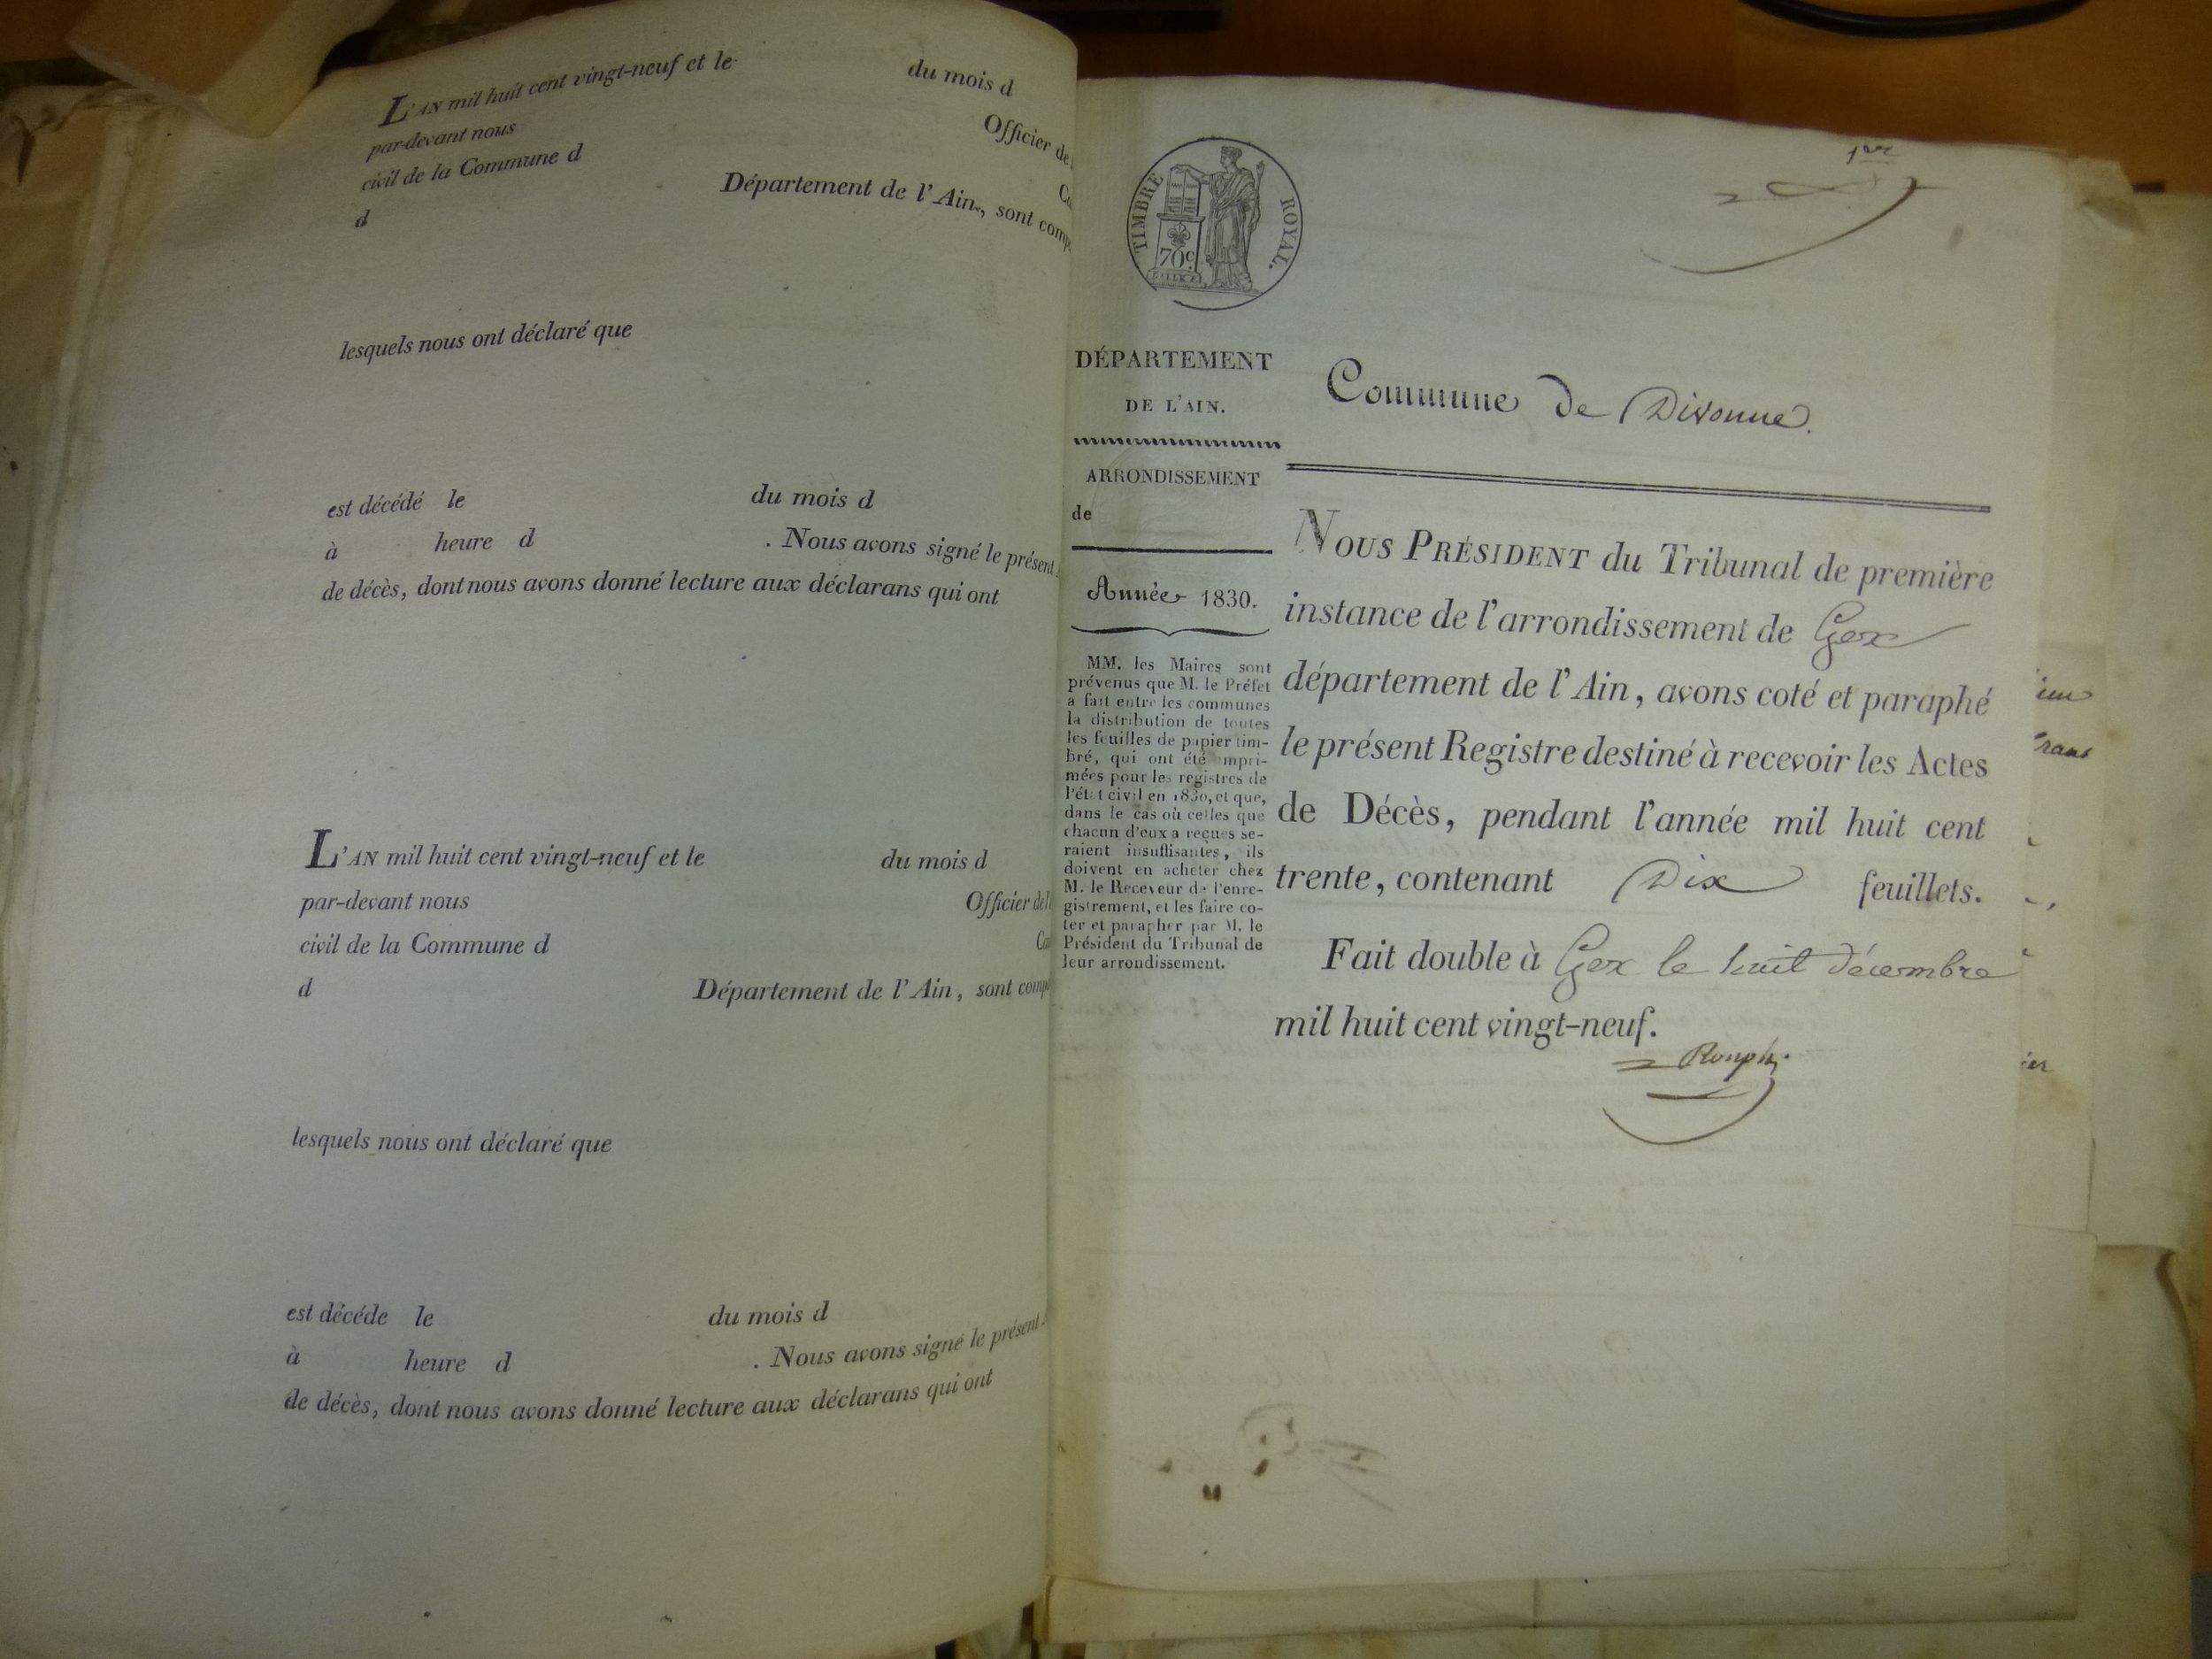 L'AN mil huit cent vingt-neuf et le du mois d
par-devant nous Officier de
civil de la Commune d
d Département de l'Ain, sont comp
lesquels nous ont déclaré que
est décédé le du mois d
à heure d . Nous avons signé le présent
de décès, dont nous avons donné lecture aux déclarans qui ont
L'AN mil huit cent vingt-neuf et le du mois d
par-devant nous Officier de l
civil de la Commune d
d Département de l'Ain, sont comp
lesquels nous ont déclaré que
est décéde le du mois d
à heure d . Nous avons signé le présent
de décès, dont nous avons donné lecture aux déclarans qui ont
1er
TIMBRE ROYAL.
70c
DÉPARTEMENT
DE L'AIN.
ARRONDISSEMENT
de
Année 1830.
MM. les Maires sont
prévenus que M. le Préfet
a fait entre les communes
la distribution de toutes
les feuilles de papier tim-
bré, qui ont été impri-
mées pour les registres de
l'état civil en 1830, et que,
dans le cas où celles que
chacun d'eux a reçues se-
raient insuffisantes, ils
doivent en acheter chez
M. le Receveur de l'enre-
gistrement, et les faire co-
ter et parapher par M. le
Président du Tribunal de
leur arrondissement.
Commune de Divonne.
NOUS PRÉSIDENT du Tribunal de première
instance de l'arrondissement de Gex
département de l'Ain, avons coté et paraphé
le présent Registre destiné à recevoir les Actes
de Décès, pendant l'année mil huit cent
trente, contenant Dix feuillets.
Fait double à Gex le huit décembre
mil huit cent vingt-neuf.